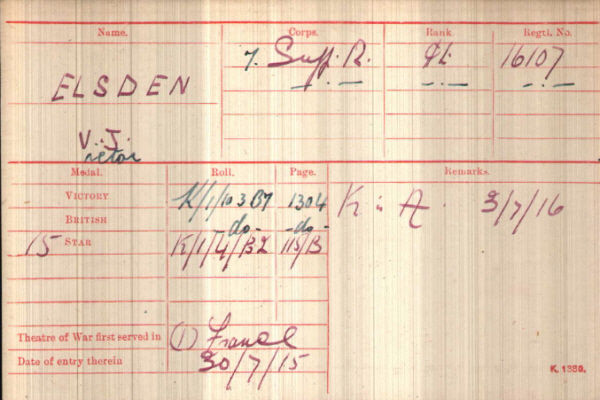 Name. Corps. Rank Regtl. No.
7. Suff. R. Pt. 16107
" — " — " —
ELSDEN
V. J.
Victor
Medal. Roll. Page. Remarks.
VICTORY K/1/103 B7 1304 K in A. 3/7/16
BRITISH -do- -do-
15 STAR K/1/4/B2 115/B
Theatre of War first served in (1) France
Date of entry therein 30/7/15
K. 1380.